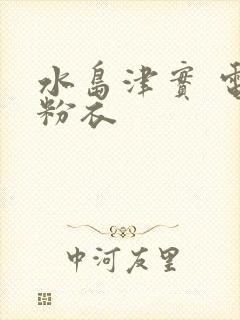 水島津實 電
粉衣
中河友里